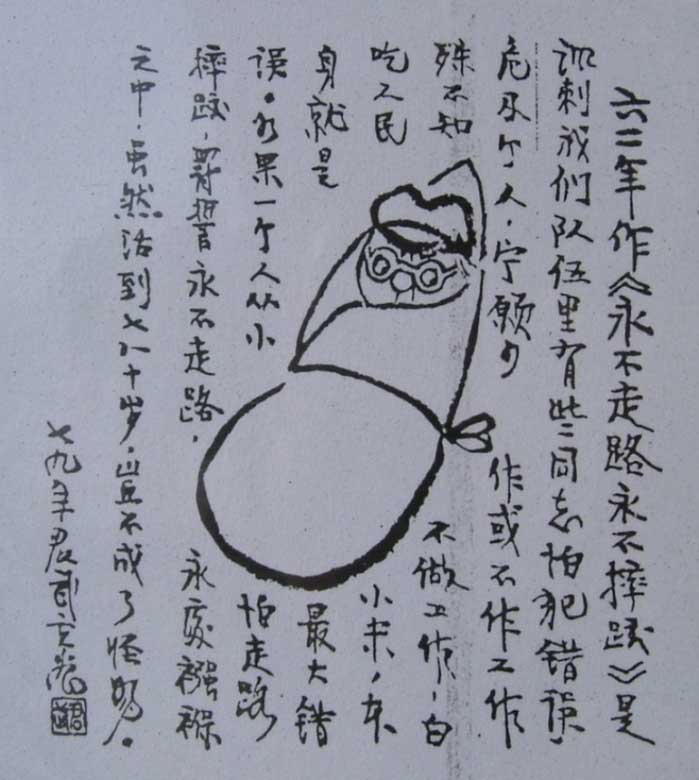 六二年作《永不走路永不摔跤》是
讽刺我们队伍里有些同志怕犯错误,
危及个人,宁愿少作或不作工作
殊不知不做工作,白
吃人民小米,本
身就是最大错
误。如果一个人从小怕走路
摔跤,罚誓永不走路,永处襁褓
之中,虽然活到七八十岁,岂不成了怪物。
七九年君武